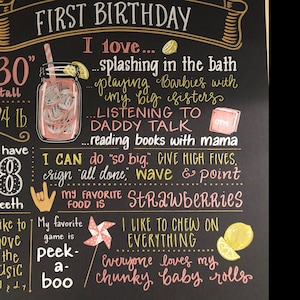 FIRST BIRTHDAY
I love...
30"
tall
...splashing in the bath
...playing Barbies with
my big sisters
lb
...LISTENING TO
DADDY TALK
...reading books with mama
have
8
teeth
I CAN do "so big," GIVE HIGH FIVES,
sign "all done," wave & point
MY FAVORITE
FOOD IS STRAWBERRIES
like to
move
the
music
My favorite
game is
peek-
a-
boo
I LIKE TO CHEW ON
EVERYTHING
Everyone loves my
chunky baby rolls